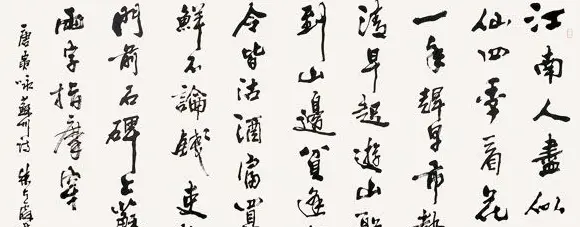 江南人盡似
仙四季看花
一年趕早市
清早起遊山
到山邊貧逢
令皆沽酒富買
鮮不論錢吏
門前石碑上蘇
兩字指摩穿
唐寅咏蘇州詩 朱